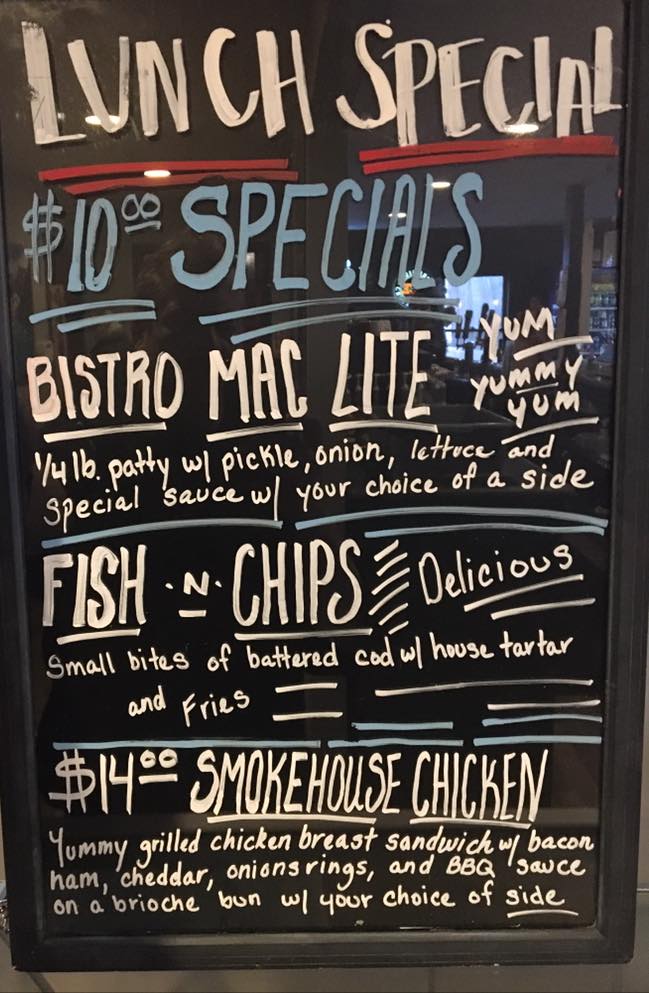 LUNCH SPECIAL
$10.00 SPECIALS
BISTRO MAC LITE
YUM
YUMMY
YUM
1/4 lb. patty w/ pickle, onion, lettuce and
special sauce w/ your choice of a side
FISH ·N· CHIPS Delicious
Small bites of battered cod w/ house tartar
and Fries
$14.00 SMOKEHOUSE CHICKEN
Yummy grilled chicken breast sandwich w/ bacon
ham, cheddar, onions rings, and BBQ sauce
on a brioche bun w/ your choice of side